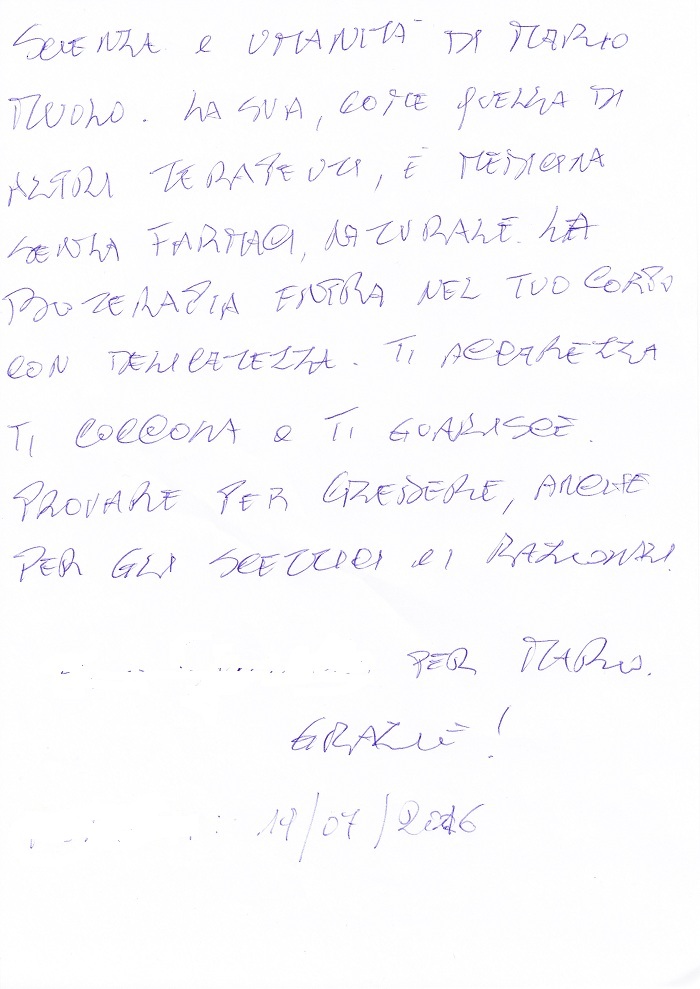 SCIENZA e UMANITÀ DI MARIO
MUOLO. LA SUA, COME QUELLA DI
ALTRI TERAPEUTI, È MEDICINA
SENZA FARMACI, NATURALE. LA
BIOTERAPIA ENTRA NEL TUO CORPO
CON DELICATEZZA. TI ACCAREZZA
TI COCCOLA e TI GUARISCE.
PROVARE PER CREDERE, ANCHE
PER GLI SCETTICI e I RAZIONALI.
PER MARIO.
GRAZIE!
19/07/2016